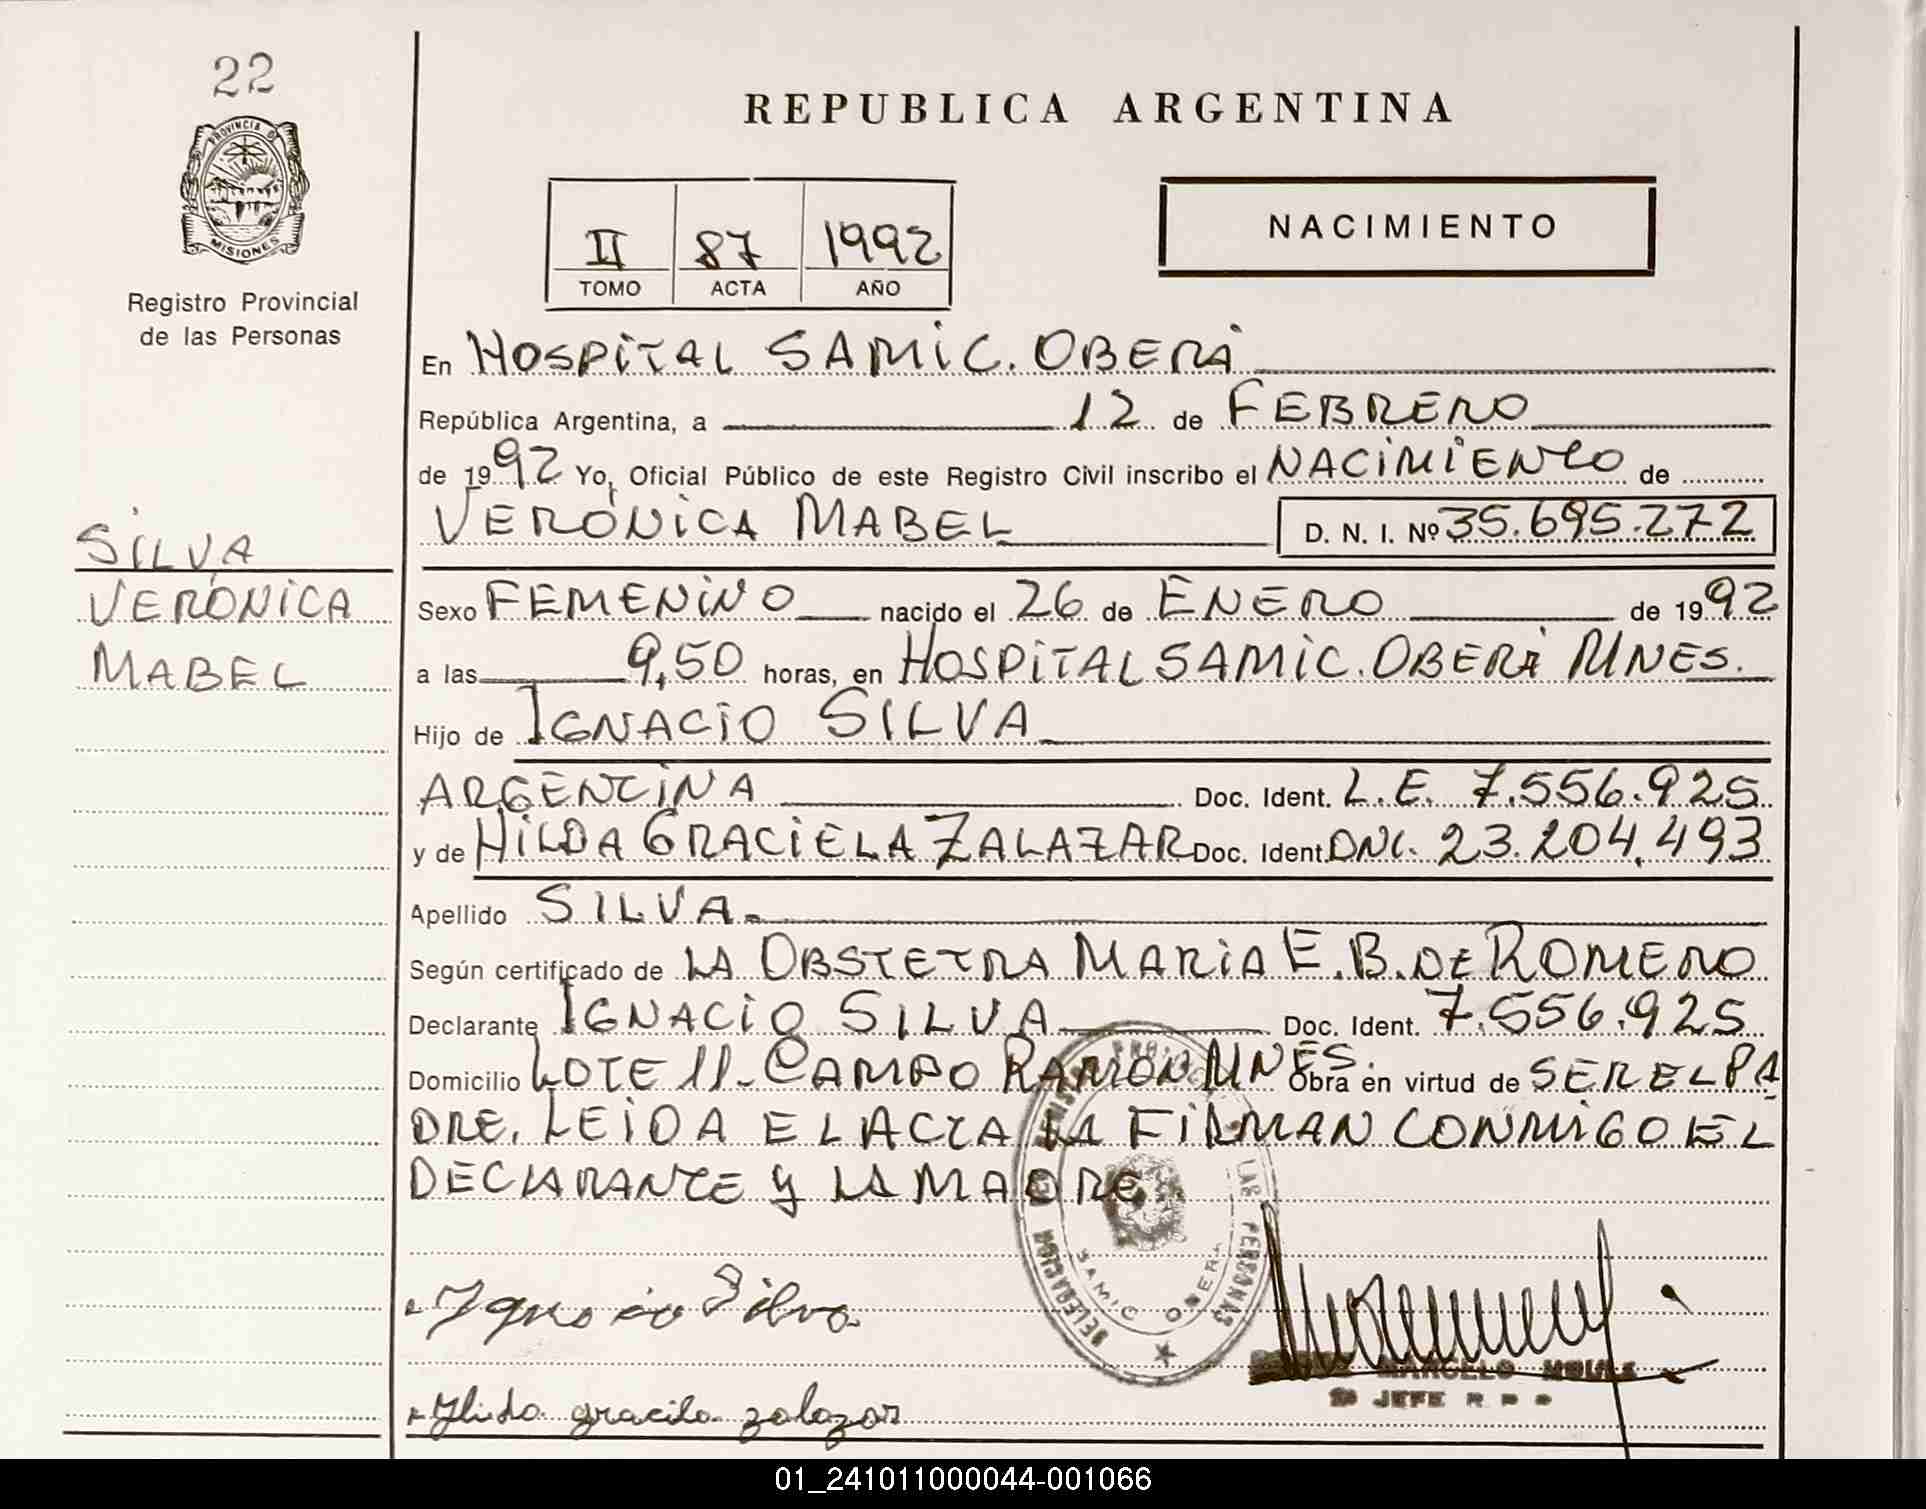 22
PROVINCIA D
MISIONES
Registro Provincial
de las Personas
SILVA
VERÓNICA
MABEL
REPUBLICA ARGENTINA
II 87 1992
TOMO ACTA AÑO
NACIMIENTO
En HOSPITAL SAMIC. OBERÁ
República Argentina, a 12 de FEBRERO
de 1992 Yo, Oficial Público de este Registro Civil inscribo el NACIMIENTO de
VERÓNICA MABEL D. N. I. Nº 35.695.272
Sexo FEMENINO nacido el 26 de ENERO de 1992
a las 9,50 horas, en HOSPITAL SAMIC. OBERÁ MNES.
Hijo de IGNACIO SILVA
ARGENTINA Doc. Ident. L.E. 7.556.925
y de HILDA GRACIELA ZALAZAR Doc. Ident. DNI. 23.204.493
Apellido SILVA.
Según certificado de LA OBSTETRA MARIA E. B. DE ROMERO
Declarante IGNACIO SILVA Doc. Ident. 7.556.925
Domicilio LOTE 11- CAMPO RAMÓN MNES. Obra en virtud de SER EL PA
DRE. LEIDA EL ACTA LA FIRMAN CONMIGO EL
DECLARANTE Y LA MADRE
DELEGACION LAS PERSONAS
SAMIC OBERA
Ignacio Silva
Hilda gracila zalazar
MARCELO
JEFE R P
01_241011000044-001066